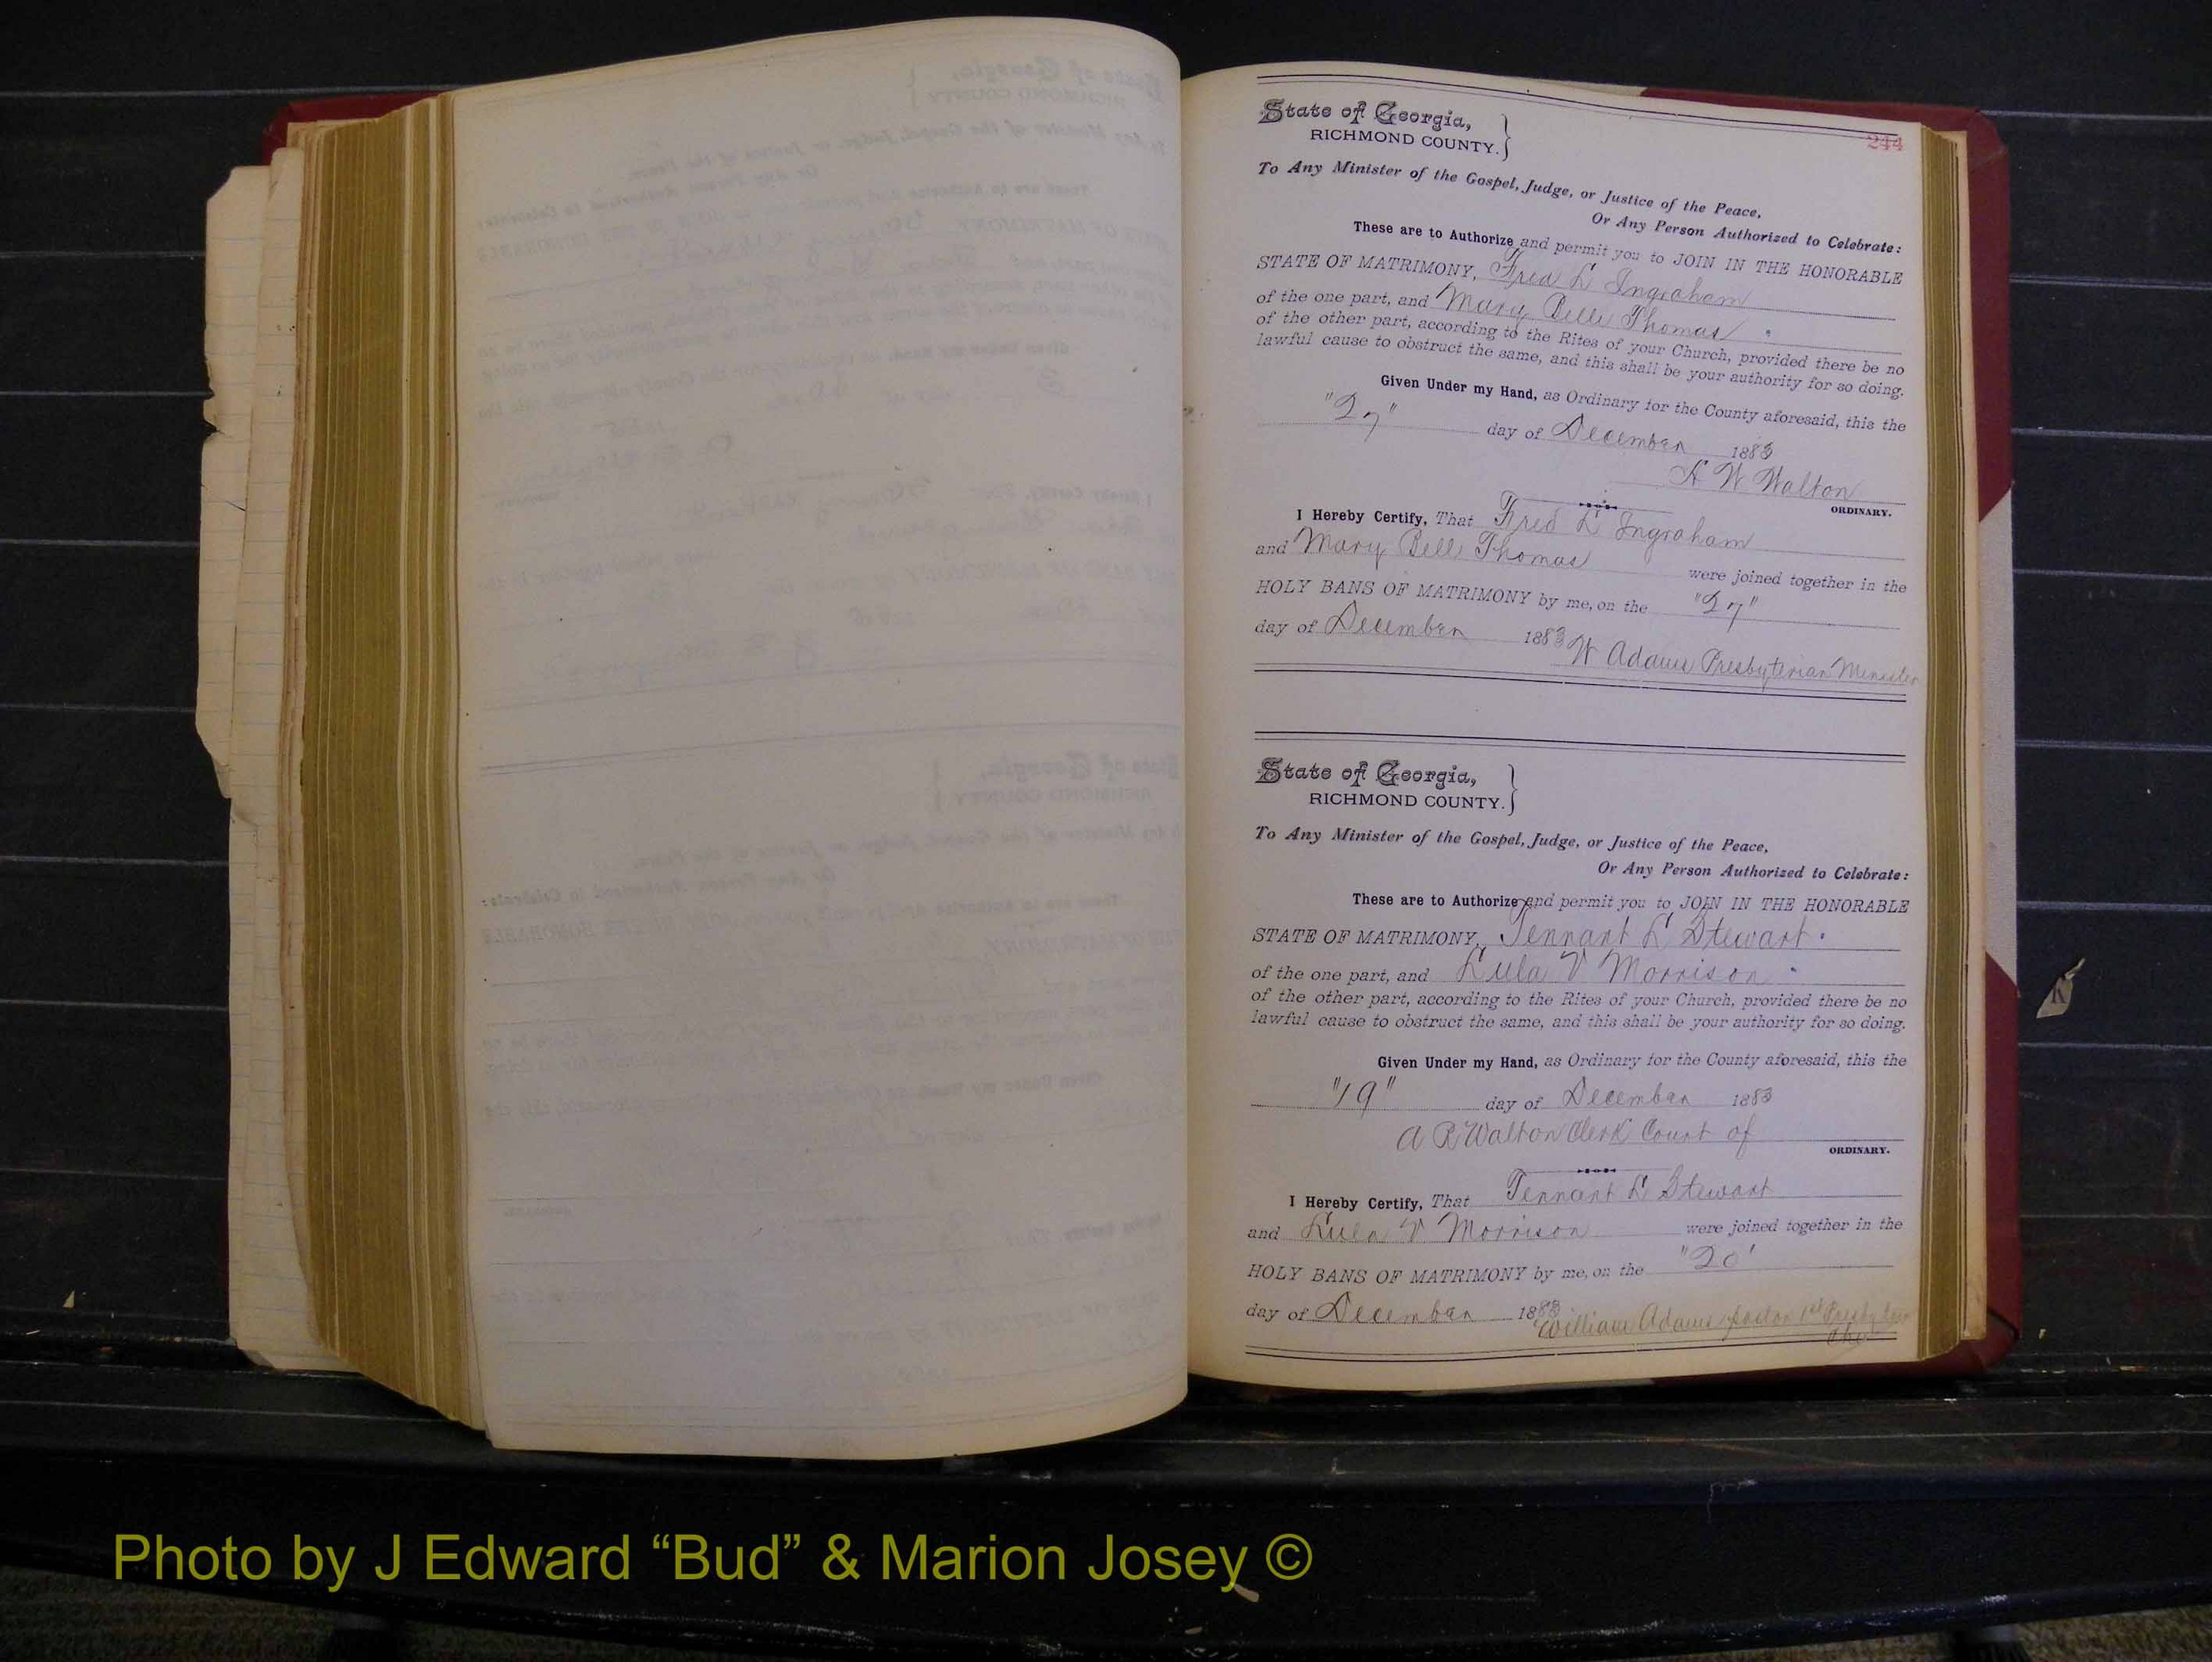 244
State of Georgia,
RICHMOND COUNTY.
To Any Minister of the Gospel, Judge, or Justice of the Peace,
Or Any Person Authorized to Celebrate:
These are to Authorize and permit you to JOIN IN THE HONORABLE
STATE OF MATRIMONY, Fred L Ingraham
of the one part, and Mary Belle Thomas
of the other part, according to the Rites of your Church, provided there be no
lawful cause to obstruct the same, and this shall be your authority for so doing.
Given Under my Hand, as Ordinary for the County aforesaid, this the
"27" day of December 1883
H W Walton
ORDINARY.
I Hereby Certify, That Fred L Ingraham
and Mary Bell Thomas were joined together in the
HOLY BANS OF MATRIMONY by me, on the "27"
day of December 1883 W Adams Presbyterian Minister
State of Georgia,
RICHMOND COUNTY.
To Any Minister of the Gospel, Judge, or Justice of the Peace,
Or Any Person Authorized to Celebrate:
These are to Authorize and permit you to JOIN IN THE HONORABLE
STATE OF MATRIMONY, Tennant L Stewart
of the one part, and Lula V Morrison
of the other part, according to the Rites of your Church, provided there be no
lawful cause to obstruct the same, and this shall be your authority for so doing.
Given Under my Hand, as Ordinary for the County aforesaid, this the
"19" day of December 1883
A R Walton Clerk Court of
ORDINARY.
I Hereby Certify, That Tennant L Stewart
and Lula V Morrison were joined together in the
HOLY BANS OF MATRIMONY by me, on the "20'
day of December 1883 William Adams Pastor 1st
Photo by J Edward “Bud” & Marion Josey ©